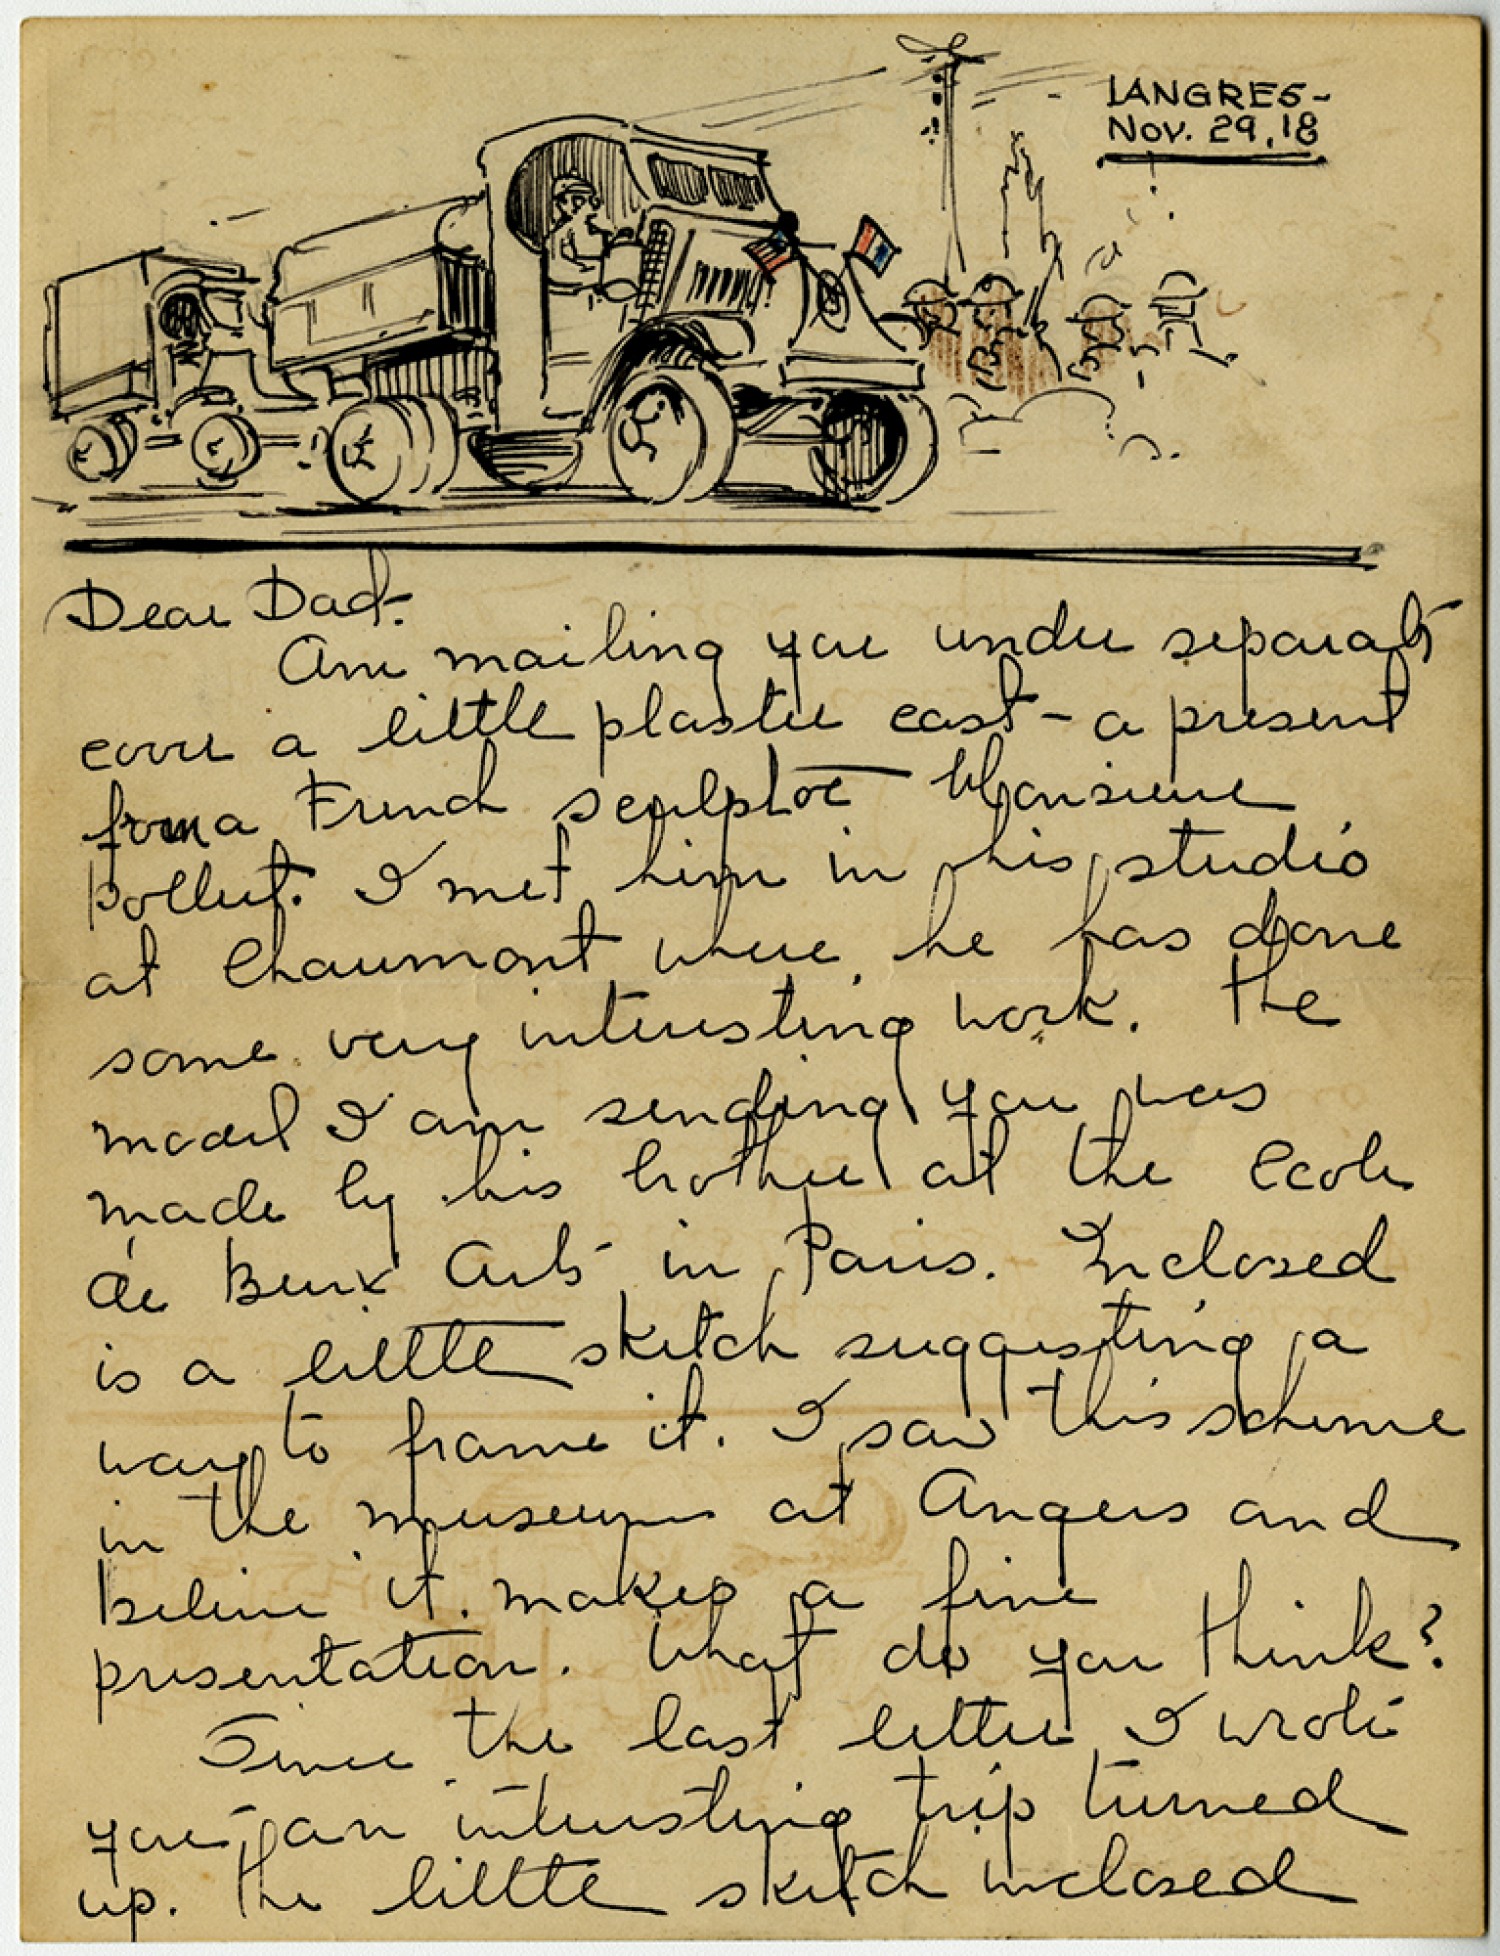 LANGRES-
Nov. 29, 18
Dear Dad-
Am mailing you under separate
cover a little plaster cast - a present
from a French sculptor Monsieur
Pollut. I met him in his studio
at Chaumont where he has done
some very interesting work. The
model I am sending you was
made by his brother at the Ecole
de Beux Arts in Paris. Inclosed
is a little sketch suggesting a
way to frame it. I saw this scheme
in the museum at Angers and
believe it makes a fine
presentation. What do you think?
Since the last letter I wrote
you an interesting trip turned
up. The little sketch inclosed